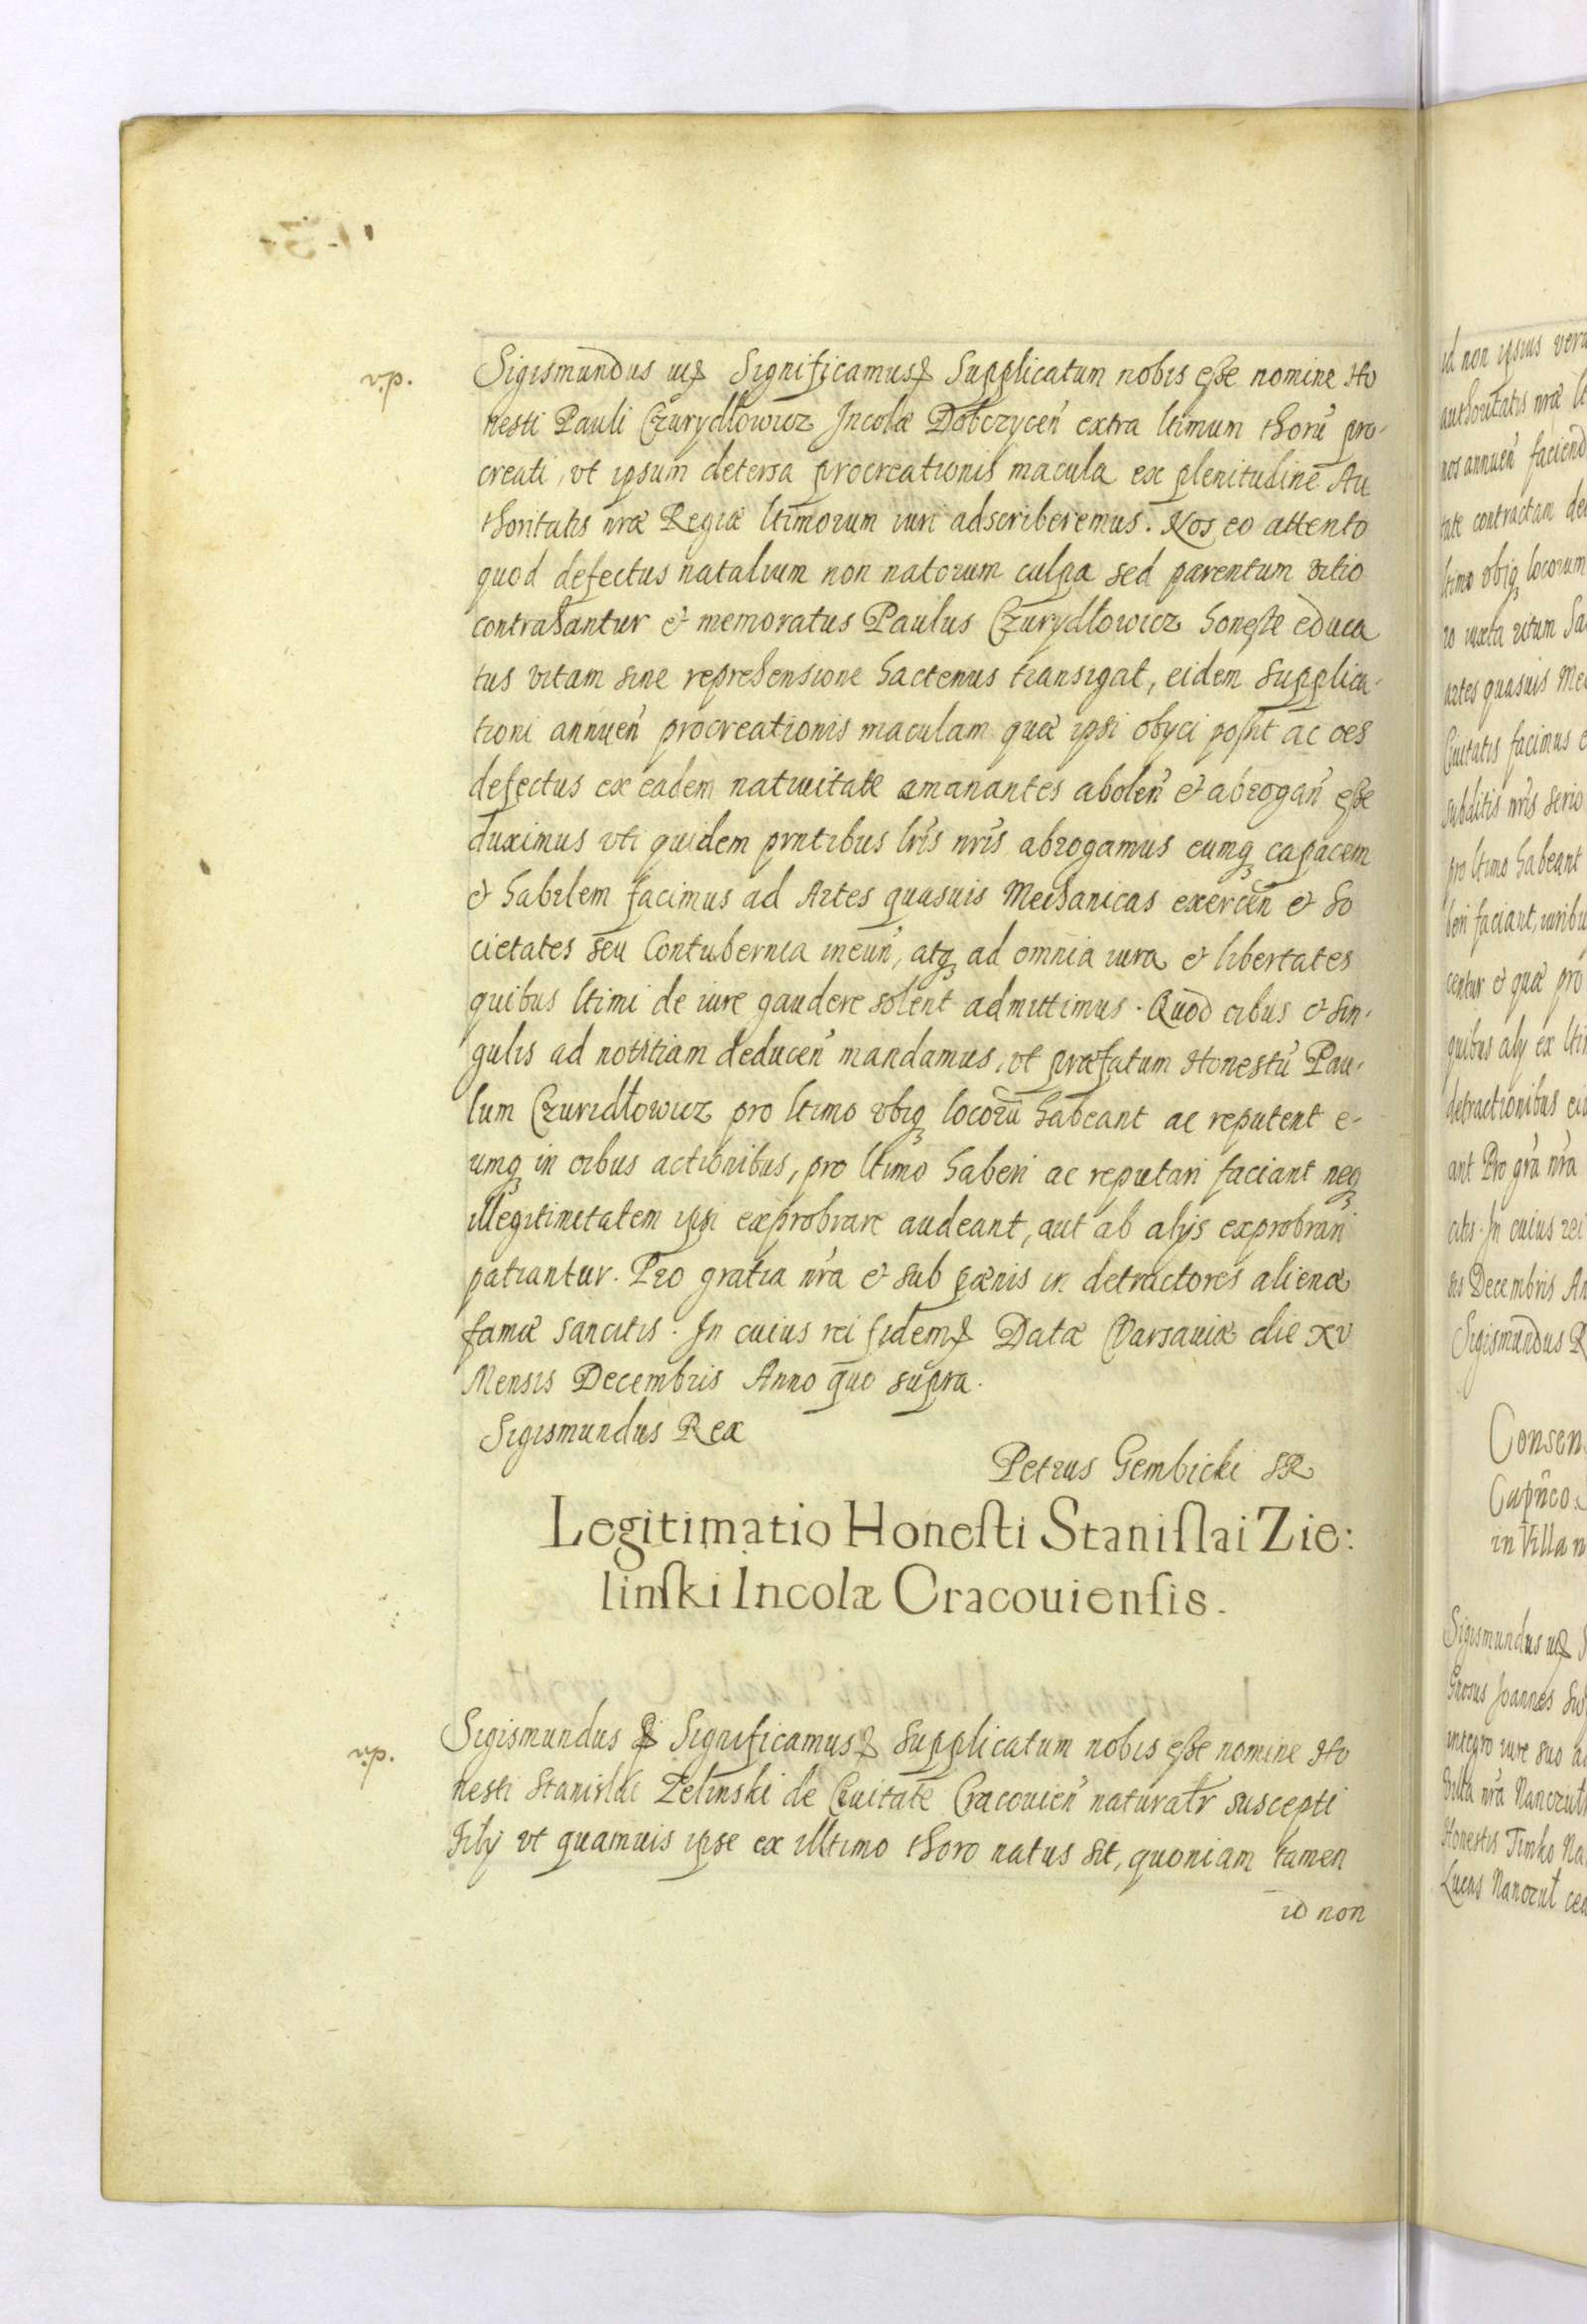 Sigismundus iii& Significamus& Supplicatum nobis esse nomine Ho
nesti Pauli Czurydłowicz Incolæ Dobczyceń extra ltimum thorū pro-
creati, vt ipsum detersa procreationis macula ex plenitudine Au
thoritatis nræ Regiæ ltimorum iuri adscriberemus. Nos eo attento
quod defectus natalium non natorum culpa sed parentum vitio
contrahantur & memoratus Paulus Czurydłowicz honeste educa
tus vitam sine reprehensione hactenus transigat, eidem supplica-
tioni annueń procreationis maculam quæ ipsi obyci posst ac oes
defectus ex eadem natiuitate amanantes aboleń & abrogań esse
duximus vti quidem prntibus lris nris abrogamus eumq capacem
& habilem facimus ad Artes quasuis Mechanicas exerceń & So
cietates seu Contubernia ineuń, atq ad omnia iura & libertates
quibus ltimi de iure gaudere solent admittimus. Quod oibus & sin-
gulis ad notitiam deduceń mandamus, vt præfatum Honestū Pau-
lum Czuridłowicz pro ltimo vbiq locorū habeant ac reputent e-
umq in oibus actionibus, pro ltimo haberi ac reputari faciant neq
illegitimitatem ipsi exprobrare audeant, aut ab alys exprobrari
patiantur. Pro gratia nra & sub pœnis in detractores alienæ
famæ sancitis. In cuius rei fidem& Datæ Varsauiæ die xv
Mensis Decembris Anno quo supra.
Sigismundus Rex
Petrus Gembicki SR
Legitimatio Honesti Stanislai Zie:
linski Incolæ Cracouiensis.
Sigismundus & Significamus& Supplicatum nobis esse nomine Ho
nesti Stanislai Zelinski de Ciuitate Cracouień naturalr suscepti
Filij vt quamuis ipse ex illtimo thoro natus sit, quoniam tamen
id non
id non ipsius
authoritatis nræ
nos annueń
tate contractan
ltimo vbiq locorum
ro iuxta ritum
artes quasuis
Ciuitatis facimus
subditis nris serio
pro ltimo habeant
beri faciant, iuribu
centur & quæ
quibus aly ex
detractionibus
ant Pro gra nra
citis. In cuius rei
sis Decembris An
Sigismundus R
Consen
in Villa
Sigismundus iii&
Joannes
integro iure suo
Villa nra
Honestis
Lucas